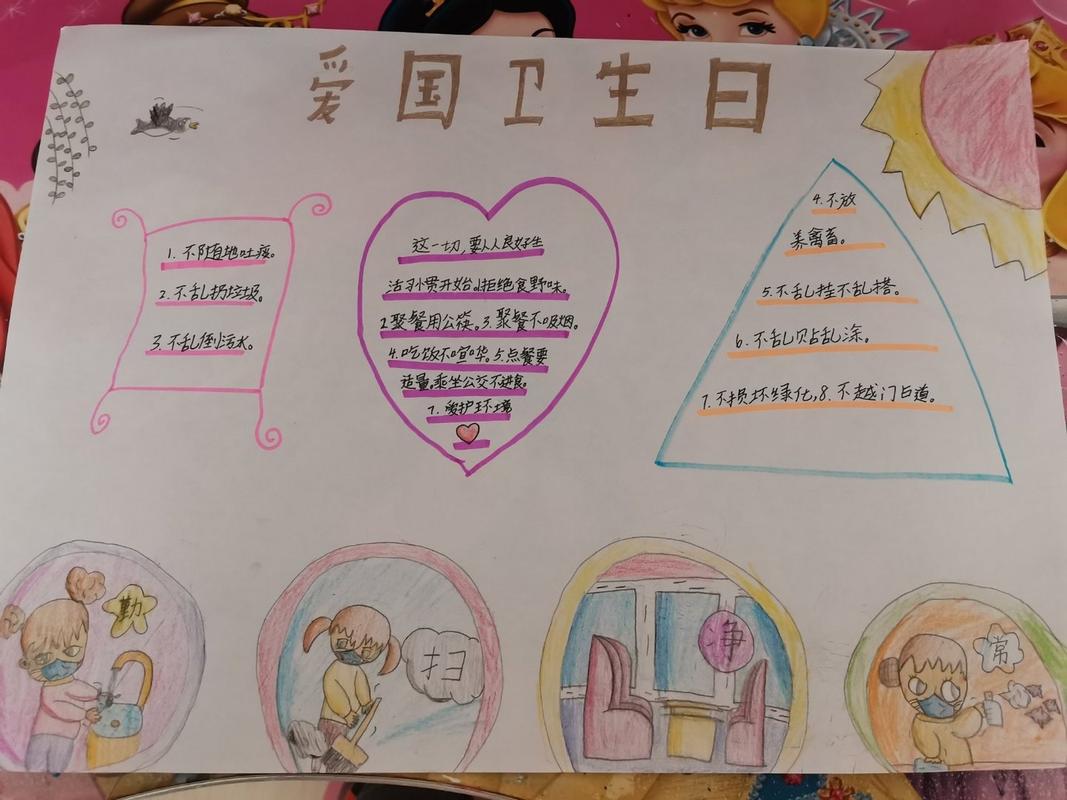 爱国卫生日
1. 不随地吐痰。
2. 不乱扔垃圾。
3. 不乱倒污水。
这一切,要人人良好生
活习惯开始。1拒绝食野味。
2聚餐用公筷。3.聚餐不吸烟。
4.吃饭不喧哗。5.点餐要
适量,乘坐公交不进食。
7.爱护环境
4.不放
养禽畜。
5.不乱挂不乱搭。
6.不乱贴乱涂。
7.不损坏绿化,8.不越门占道。
勤
扫
净
常